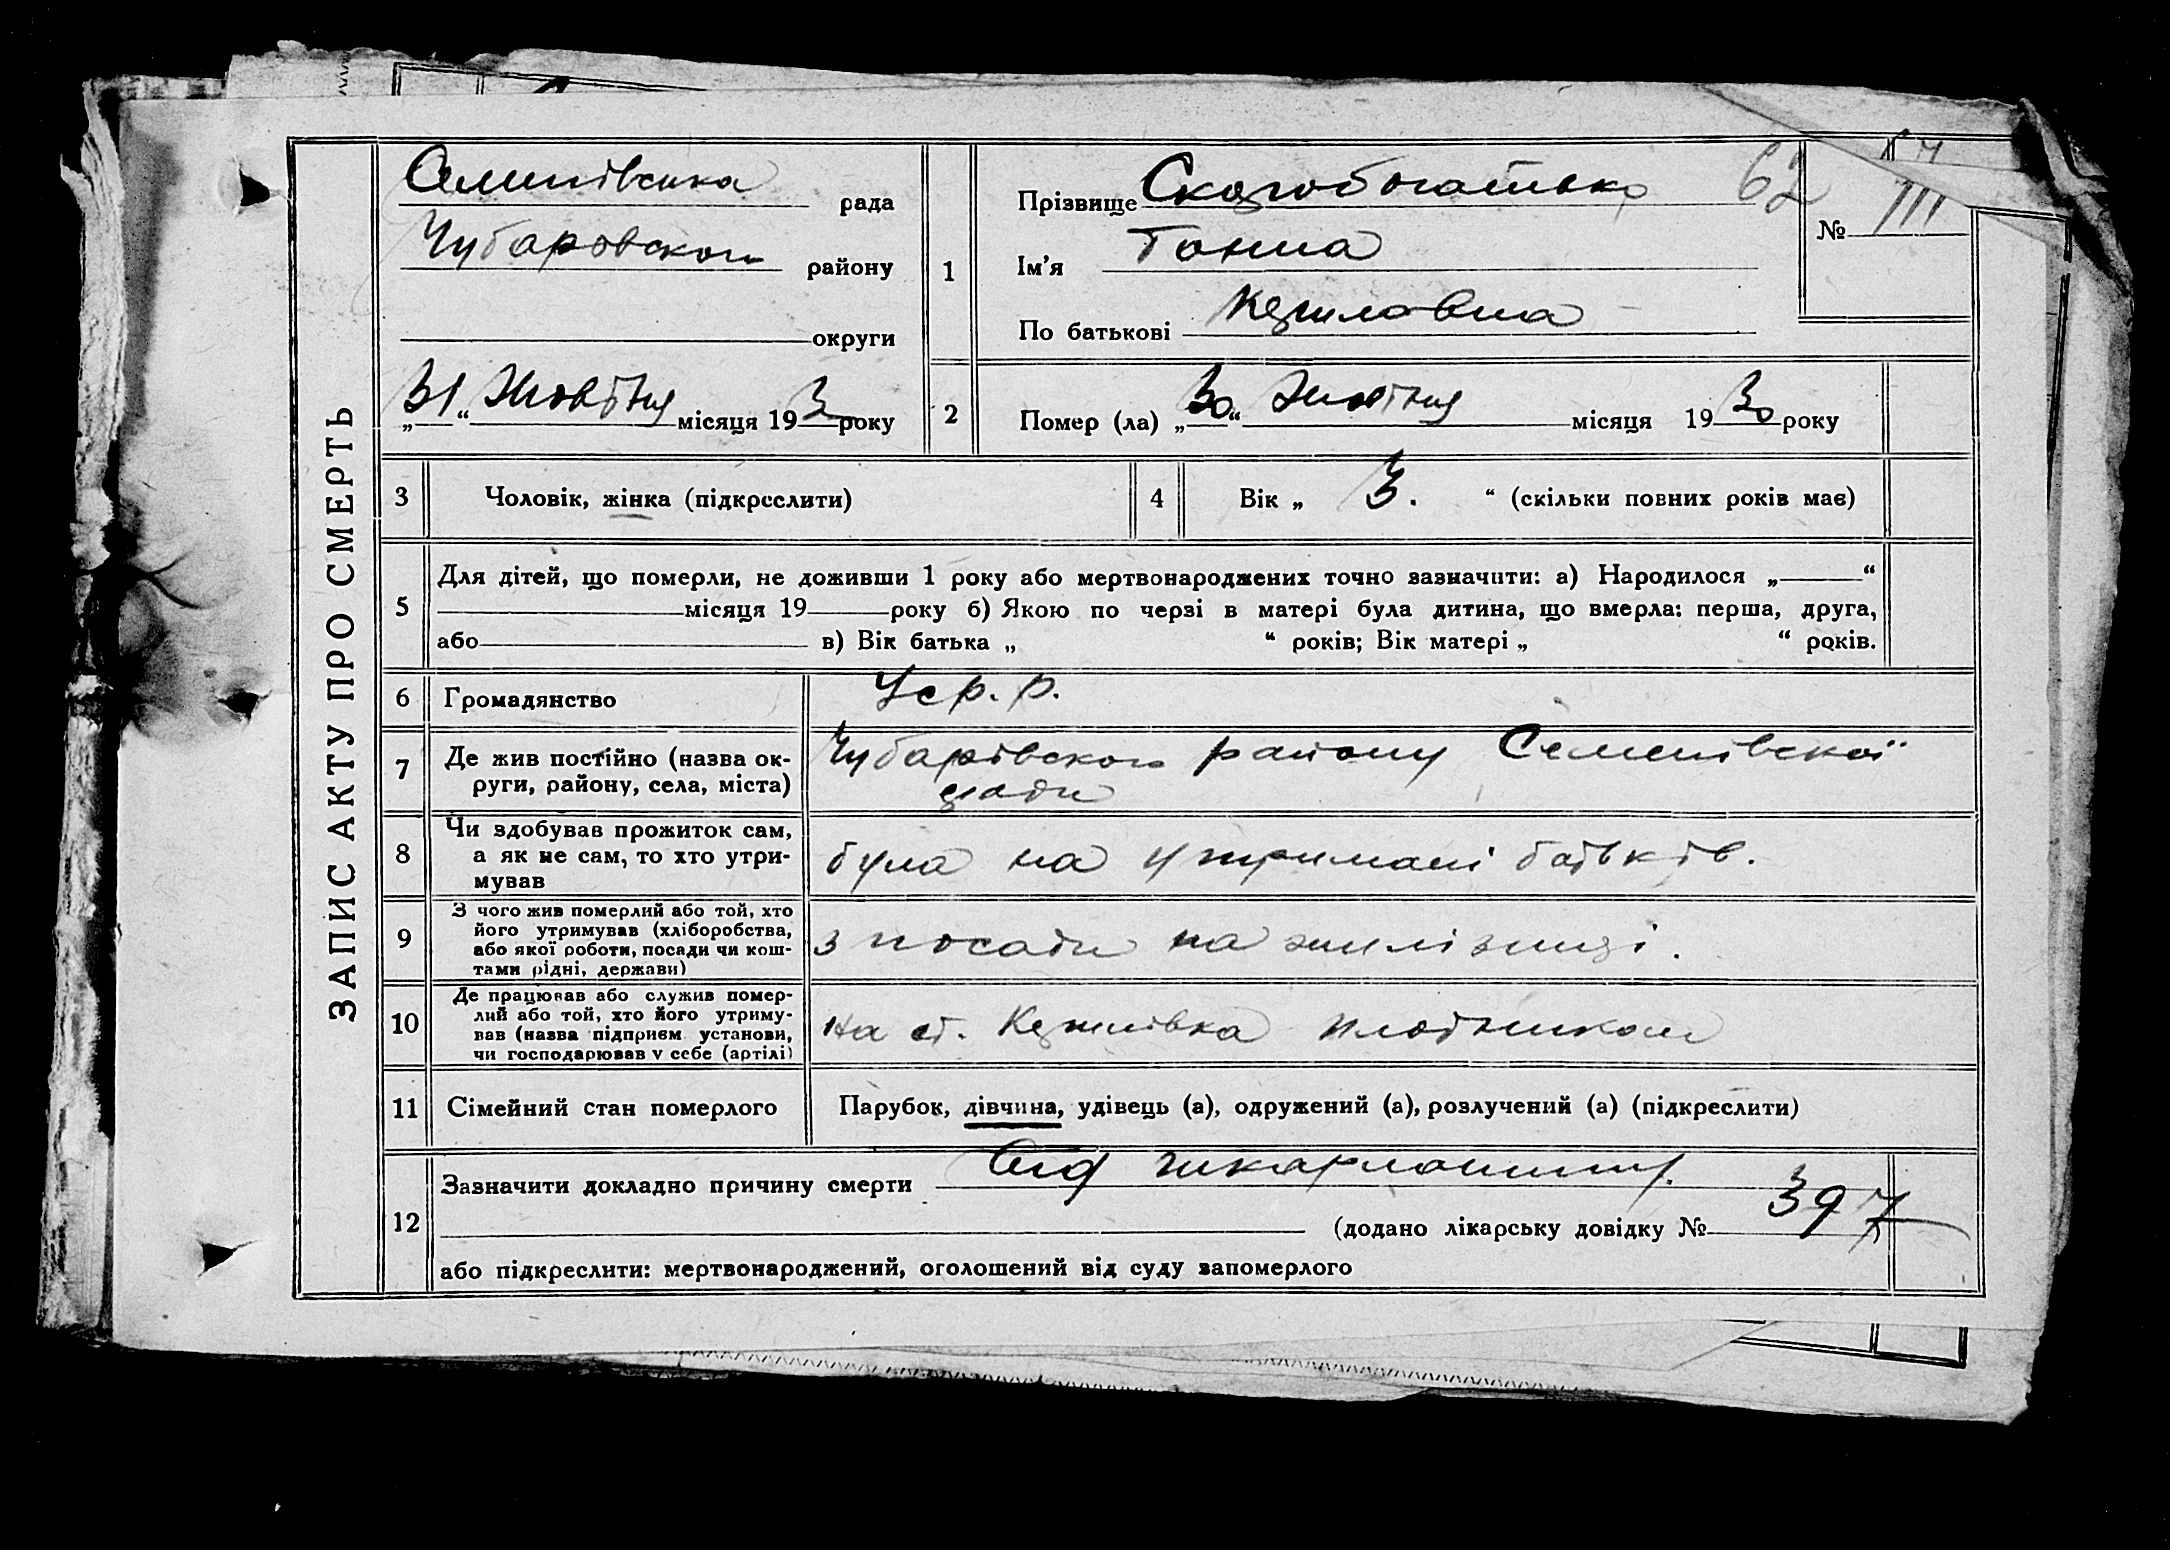 ЗАПИС АКТУ ПРО СМЕРТЬ
Семенівська рада
Чубаровского району
округи
„31“ Жовтня місяця 1930 року
1
Прізвище Скоробогатько 62
Ім’я Ганна
По батькові
№
2
Помер (ла) „30“ Жовтня місяця 1930 року
3
Чоловік, жінка (підкреслити)
4
Вік „ 3. “ (скільки повних років має)
5
Для дітей, що померли, не доживши 1 року або мертвонароджених точно зазначити: а) Народилося „ “
місяця 19 року б) Якою по черзі в матері була дитина, що вмерла: перша, друга,
або в) Вік батька „ “ років; Вік матері „ “ років.
6
Громадянство
Уср.р.
7
Де жив постійно (назва ок-
руги, району, села, міста)
Чубарівского району Семенівскої
ради
8
Чи здобував прожиток сам,
а як не сам, то хто утри-
мував
була на утримані батьків.
9
З чого жив померлий або той, хто
його утримував (хліборобства,
або якої роботи, посади чи кош-
тами рідні, держави)
з посади на зилізниці.
10
Де працював або служив помер-
лий або той, хто його утриму-
вав (назва підприєм установи,
чи господарював у себе (артілі)
на ст. плотником
11
Сімейний стан померлого
Парубок, дівчина, удівець (а), одружений (а), розлучений (а) (підкреслити)
12
Зазначити докладно причину смерти
(додано лікарську довідку № 397
або підкреслити: мертвонароджений, оголошений від суду запомерлого